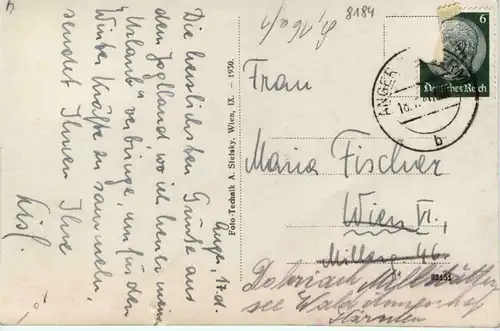 8184
6
Deutsches Reich
ANGER
b
Anger, 17. d.
Die herzlichsten Grüße aus
dem Jogelland wo ich heuer meinen
"Urlaub" verbringe, um für den
Winter Kräfte zu sammeln,
sendet Ihnen Ihre
Lisl.
Foto-Technik A. Stefsky, Wien, IX. - 1930.
Frau
Maria Fischer
Wien VI.,
46
Döbriach Millstätter
see
Kärnten